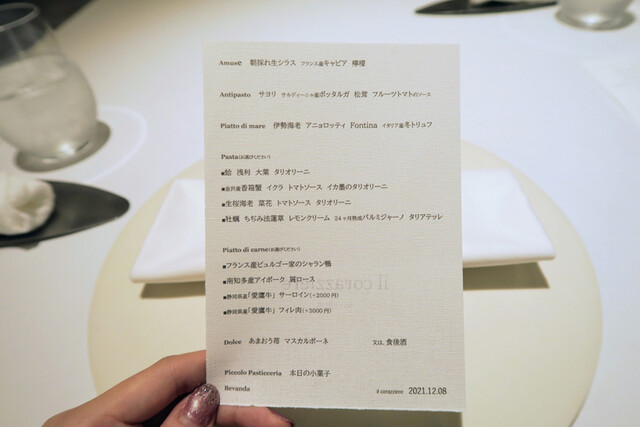 Amuse 朝採れ生シラス フランス産キャビア 檸檬
Antipasto サヨリ サルディーニャ産ボッタルガ 松茸 フルーツトマトのソース
Piatto di mare 伊勢海老 アニョロッティ Fontina イタリア産冬トリュフ
Pasta(お選びください)
■蛤 浅利 大葉 タリオリーニ
■金沢産香箱蟹 イクラ トマトソース イカ墨のタリオリーニ
■生桜海老 菜花 トマトソース タリオリーニ
■牡蠣 ちぢみ法蓮草 レモンクリーム 24ヶ月熟成パルミジャーノ タリアテッレ
Piatto di carne(お選びください)
■フランス産ビュルゴー家のシャラン鴨
■南知多産アイポーク 肩ロース
■静岡県産「愛鷹牛」サーロイン(+2000円)
■静岡県産「愛鷹牛」フィレ肉(+3000円)
Dolce あまおう苺 マスカルポーネ 又は、食後酒
Piccolo Pasticceria 本日の小菓子
Bevanda
il corazziere 2021.12.08
il corazziere